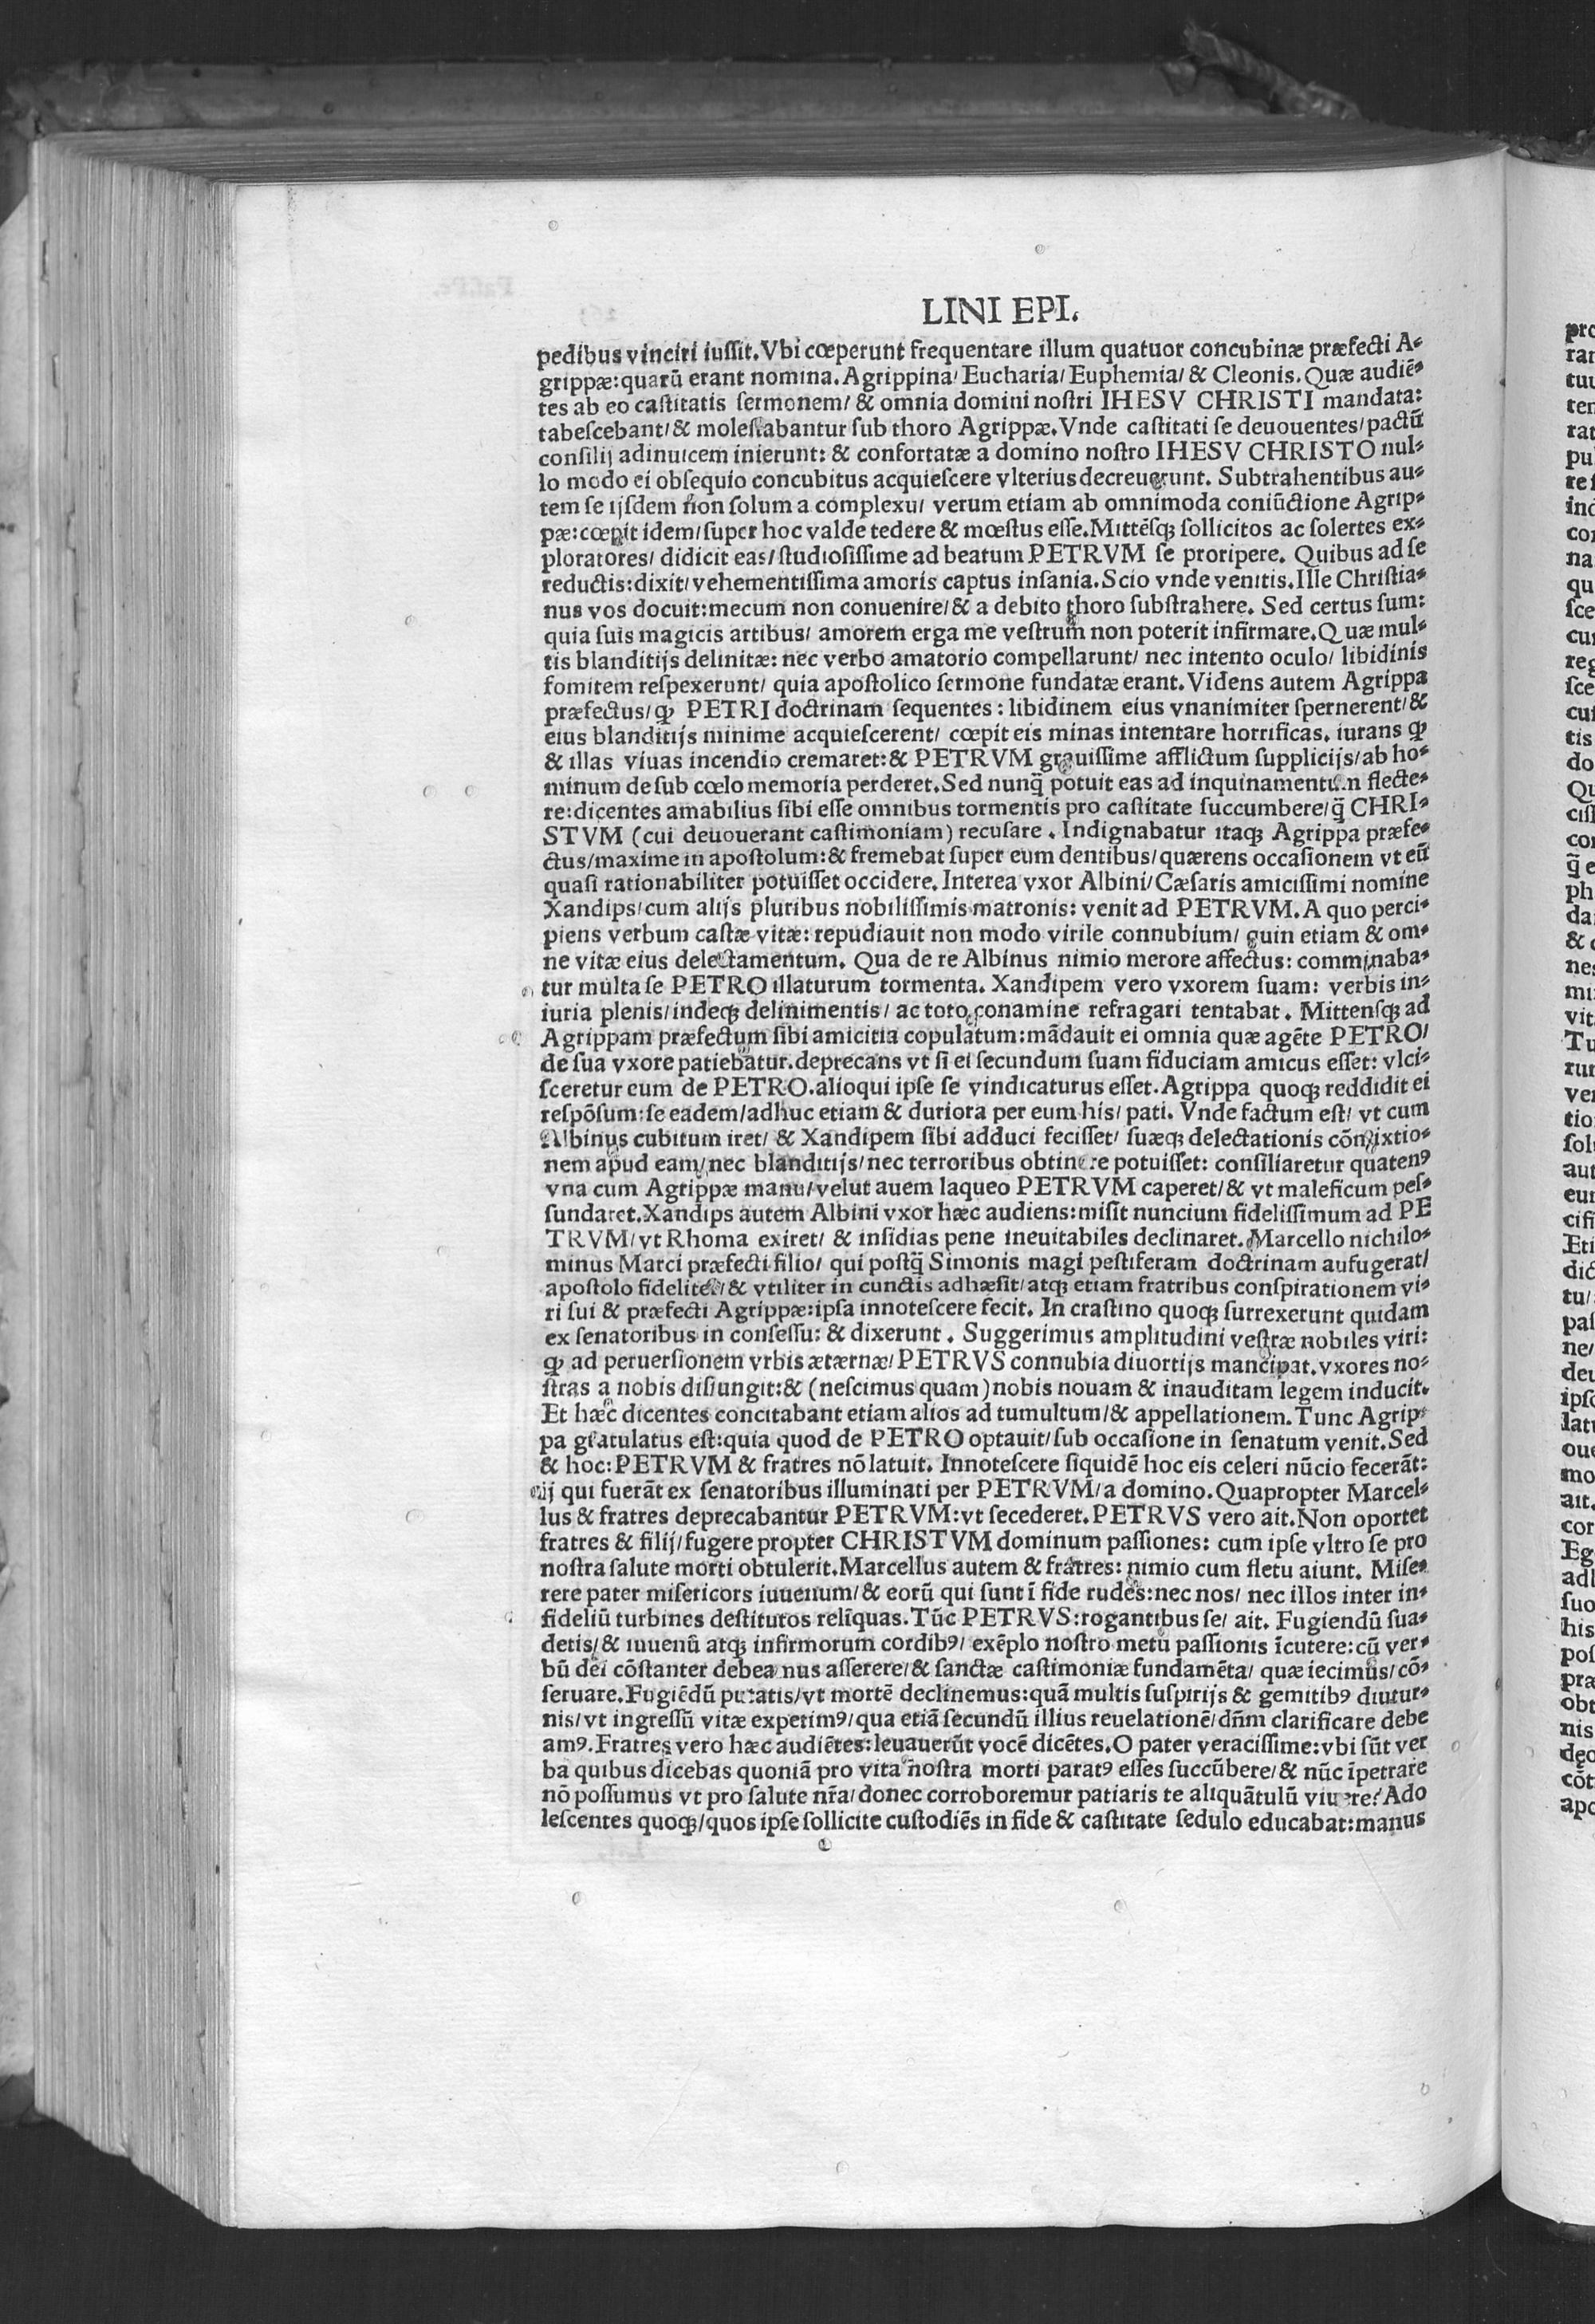 LINI EPI.
pedibus vinciri iuſſit. Vbi cœperunt frequentare illum quatuor concubinæ præfecti A⸗
grippæ: quarū erant nomina. Agrippina/ Eucharia/ Euphemia/ & Cleonis. Quæ audiē⸗
tes ab eo caſtitatis ſermonem/ & omnia domini noſtri IHESV CHRISTI mandata:
tabeſcebant/ & moleſtabantur ſub thoro Agrippæ. Vnde caſtitati ſe deuouentes/ pactū
conſilij adinuicem inierunt: & confortatæ a domino noſtro IHESV CHRISTO nul⸗
lo modo ei obſequio concubitus acquieſcere vlterius decreuerunt. Subtrahentibus au⸗
tem ſe ijſdem non ſolum a complexu/ verum etiam ab omnimoda coniūctione Agrip⸗
pæ: cœpit idem/ ſuper hoc valde tedere & mœſtus eſſe. Mittēſqꝫ ſollicitos ac ſolertes ex⸗
ploratores/ didicit eas/ ſtudioſiſſime ad beatum PETRVM ſe proripere. Quibus ad ſe
reductis: dixit/ vehementiſſima amoris captus inſania. Scio vnde venitis. Ille Chriſtia⸗
nus vos docuit: mecum non conuenire/ & a debito thoro ſubſtrahere. Sed certus ſum:
quia ſuis magicis artibus/ amorem erga me veſtrum non poterit infirmare. Quæ mul⸗
tis blanditijs delinitæ: nec verbo amatorio compellarunt/ nec intento oculo/ libidinis
fomitem reſpexerunt/ quia apoſtolico ſermone fundatæ erant. Videns autem Agrippa
præfectus/ ꝙ PETRI doctrinam ſequentes: libidinem eius vnanimiter ſpernerent/ &
eius blanditijs minime acquieſcerent/ cœpit eis minas intentare horrificas, iurans ꝙ
& illas viuas incendio cremaret: & PETRVM grauiſſime afflictum ſupplicijs/ ab ho⸗
minum de ſub cœlo memoria perderet. Sed nunq̄ potuit eas ad inquinamentum flecte⸗
re: dicentes amabilius ſibi eſſe omnibus tormentis pro caſtitate ſuccumbere/ q̄ CHRI⸗
STVM (cui deuouerant caſtimoniam) recuſare. Indignabatur itaqꝫ Agrippa præfe⸗
ctus/ maxime in apoſtolum: & fremebat ſuper eum dentibus/ quærens occaſionem vt eū
quaſi rationabiliter potuiſſet occidere. Interea vxor Albini/ Cæſaris amiciſſimi nomine
Xandips/ cum alijs pluribus nobiliſſimis matronis: venit ad PETRVM. A quo perci⸗
piens verbum caſtæ vitæ: repudiauit non modo virile connubium/ quin etiam & om⸗
ne vitæ eius delectamentum. Qua de re Albinus nimio merore affectus: comminaba⸗
tur multa ſe PETRO illaturum tormenta. Xandipem vero vxorem ſuam: verbis in⸗
iuria plenis/ indeqꝫ delinimentis/ ac toto conamine refragari tentabat. Mittenſqꝫ ad
Agrippam præfectum ſibi amicitia copulatum: mādauit ei omnia quæ agēte PETRO/
de ſua vxore patiebatur. deprecans vt ſi ei ſecundum ſuam fiduciam amicus eſſet: vlci⸗
ſceretur eum de PETRO. alioqui ipſe ſe vindicaturus eſſet. Agrippa quoqꝫ reddidit ei
reſpōſum: ſe eadem/ adhuc etiam & duriora per eum his/ pati. Vnde factum eſt/ vt cum
Albinus cubitum iret/ & Xandipem ſibi adduci feciſſet/ ſuæqꝫ delectationis cōmixtio⸗
nem apud eam/ nec blanditijs/ nec terroribus obtinere potuiſſet: conſiliaretur quatenꝰ
vna cum Agrippæ manu/ velut auem laqueo PETRVM caperet/ & vt maleficum peſ⸗
ſundaret. Xandips autem Albini vxor hæc audiens: miſit nuncium fideliſſimum ad PE
TRVM/ vt Rhoma exiret/ & inſidias pene ineuitabiles declinaret. Marcello nichilo⸗
minus Marci præfecti filio/ qui poſtq̄ Simonis magi peſtiferam doctrinam aufugerat/
apoſtolo fideliter/ & vtiliter in cunctis adhæſit/ atqꝫ etiam fratribus conſpirationem vi⸗
ri ſui & præfecti Agrippæ: ipſa innoteſcere fecit. In craſtino quoqꝫ ſurrexerunt quidam
ex ſenatoribus in conſeſſu: & dixerunt. Suggerimus amplitudini veſtræ nobiles viri:
ꝙ ad peruerſionem vrbis ætærnæ/ PETRVS connubia diuortijs mancipat. vxores no⸗
ſtras a nobis diſiungit: & (neſcimus quam) nobis nouam & inauditam legem inducit.
Et hæc dicentes concitabant etiam alios ad tumultum/ & appellationem. Tunc Agrip⸗
pa gratulatus eſt: quia quod de PETRO optauit/ ſub occaſione in ſenatum venit. Sed
& hoc: PETRVM & fratres nō latuit. Innoteſcere ſiquidē hoc eis celeri nūcio fecerāt:
ij qui fuerāt ex ſenatoribus illuminati per PETRVM/ a domino. Quapropter Marcel⸗
lus & fratres deprecabantur PETRVM: vt ſecederet. PETRVS vero ait. Non oportet
fratres & filij/ fugere propter CHRISTVM dominum paſſiones: cum ipſe vltro ſe pro
noſtra ſalute morti obtulerit. Marcellus autem & fratres: nimio cum fletu aiunt. Miſe⸗
rere pater miſericors iuuenum/ & eorū qui ſunt ī fide rudes: nec nos/ nec illos inter in⸗
fideliū turbines deſtitutos relīquas. Tūc PETRVS: rogantibus ſe/ ait. Fugiendū ſua⸗
detis/ & iuuenū atqꝫ infirmorum cordibꝰ/ exēplo noſtro metū paſſionis īcutere: cū ver⸗
bū dei cōſtanter debeamus aſſerere/ & ſanctæ caſtimoniæ fundamēta/ quæ iecimus/ cō⸗
ſeruare. Fugiēdū putatis/ vt mortē declinemus: quā multis ſuſpirijs & gemitibꝰ diutur⸗
nis/ vt ingreſſū vitæ expetimꝰ/ qua etiā ſecundū illius reuelationē/ dn̄m clarificare debe
amꝰ. Fratres vero hæc audiētes: leuauerūt vocē dicētes. O pater veraciſſime: vbi ſūt ver
ba quibus dicebas quoniā pro vita noſtra morti paratꝰ eſſes ſuccūbere/ & nūc īpetrare
nō poſſumus vt pro ſalute nr̄a/ donec corroboremur patiaris te aliquātulū viuere? Ado
leſcentes quoqꝫ/ quos ipſe ſollicite cuſtodiēs in fide & caſtitate ſedulo educabat: manus